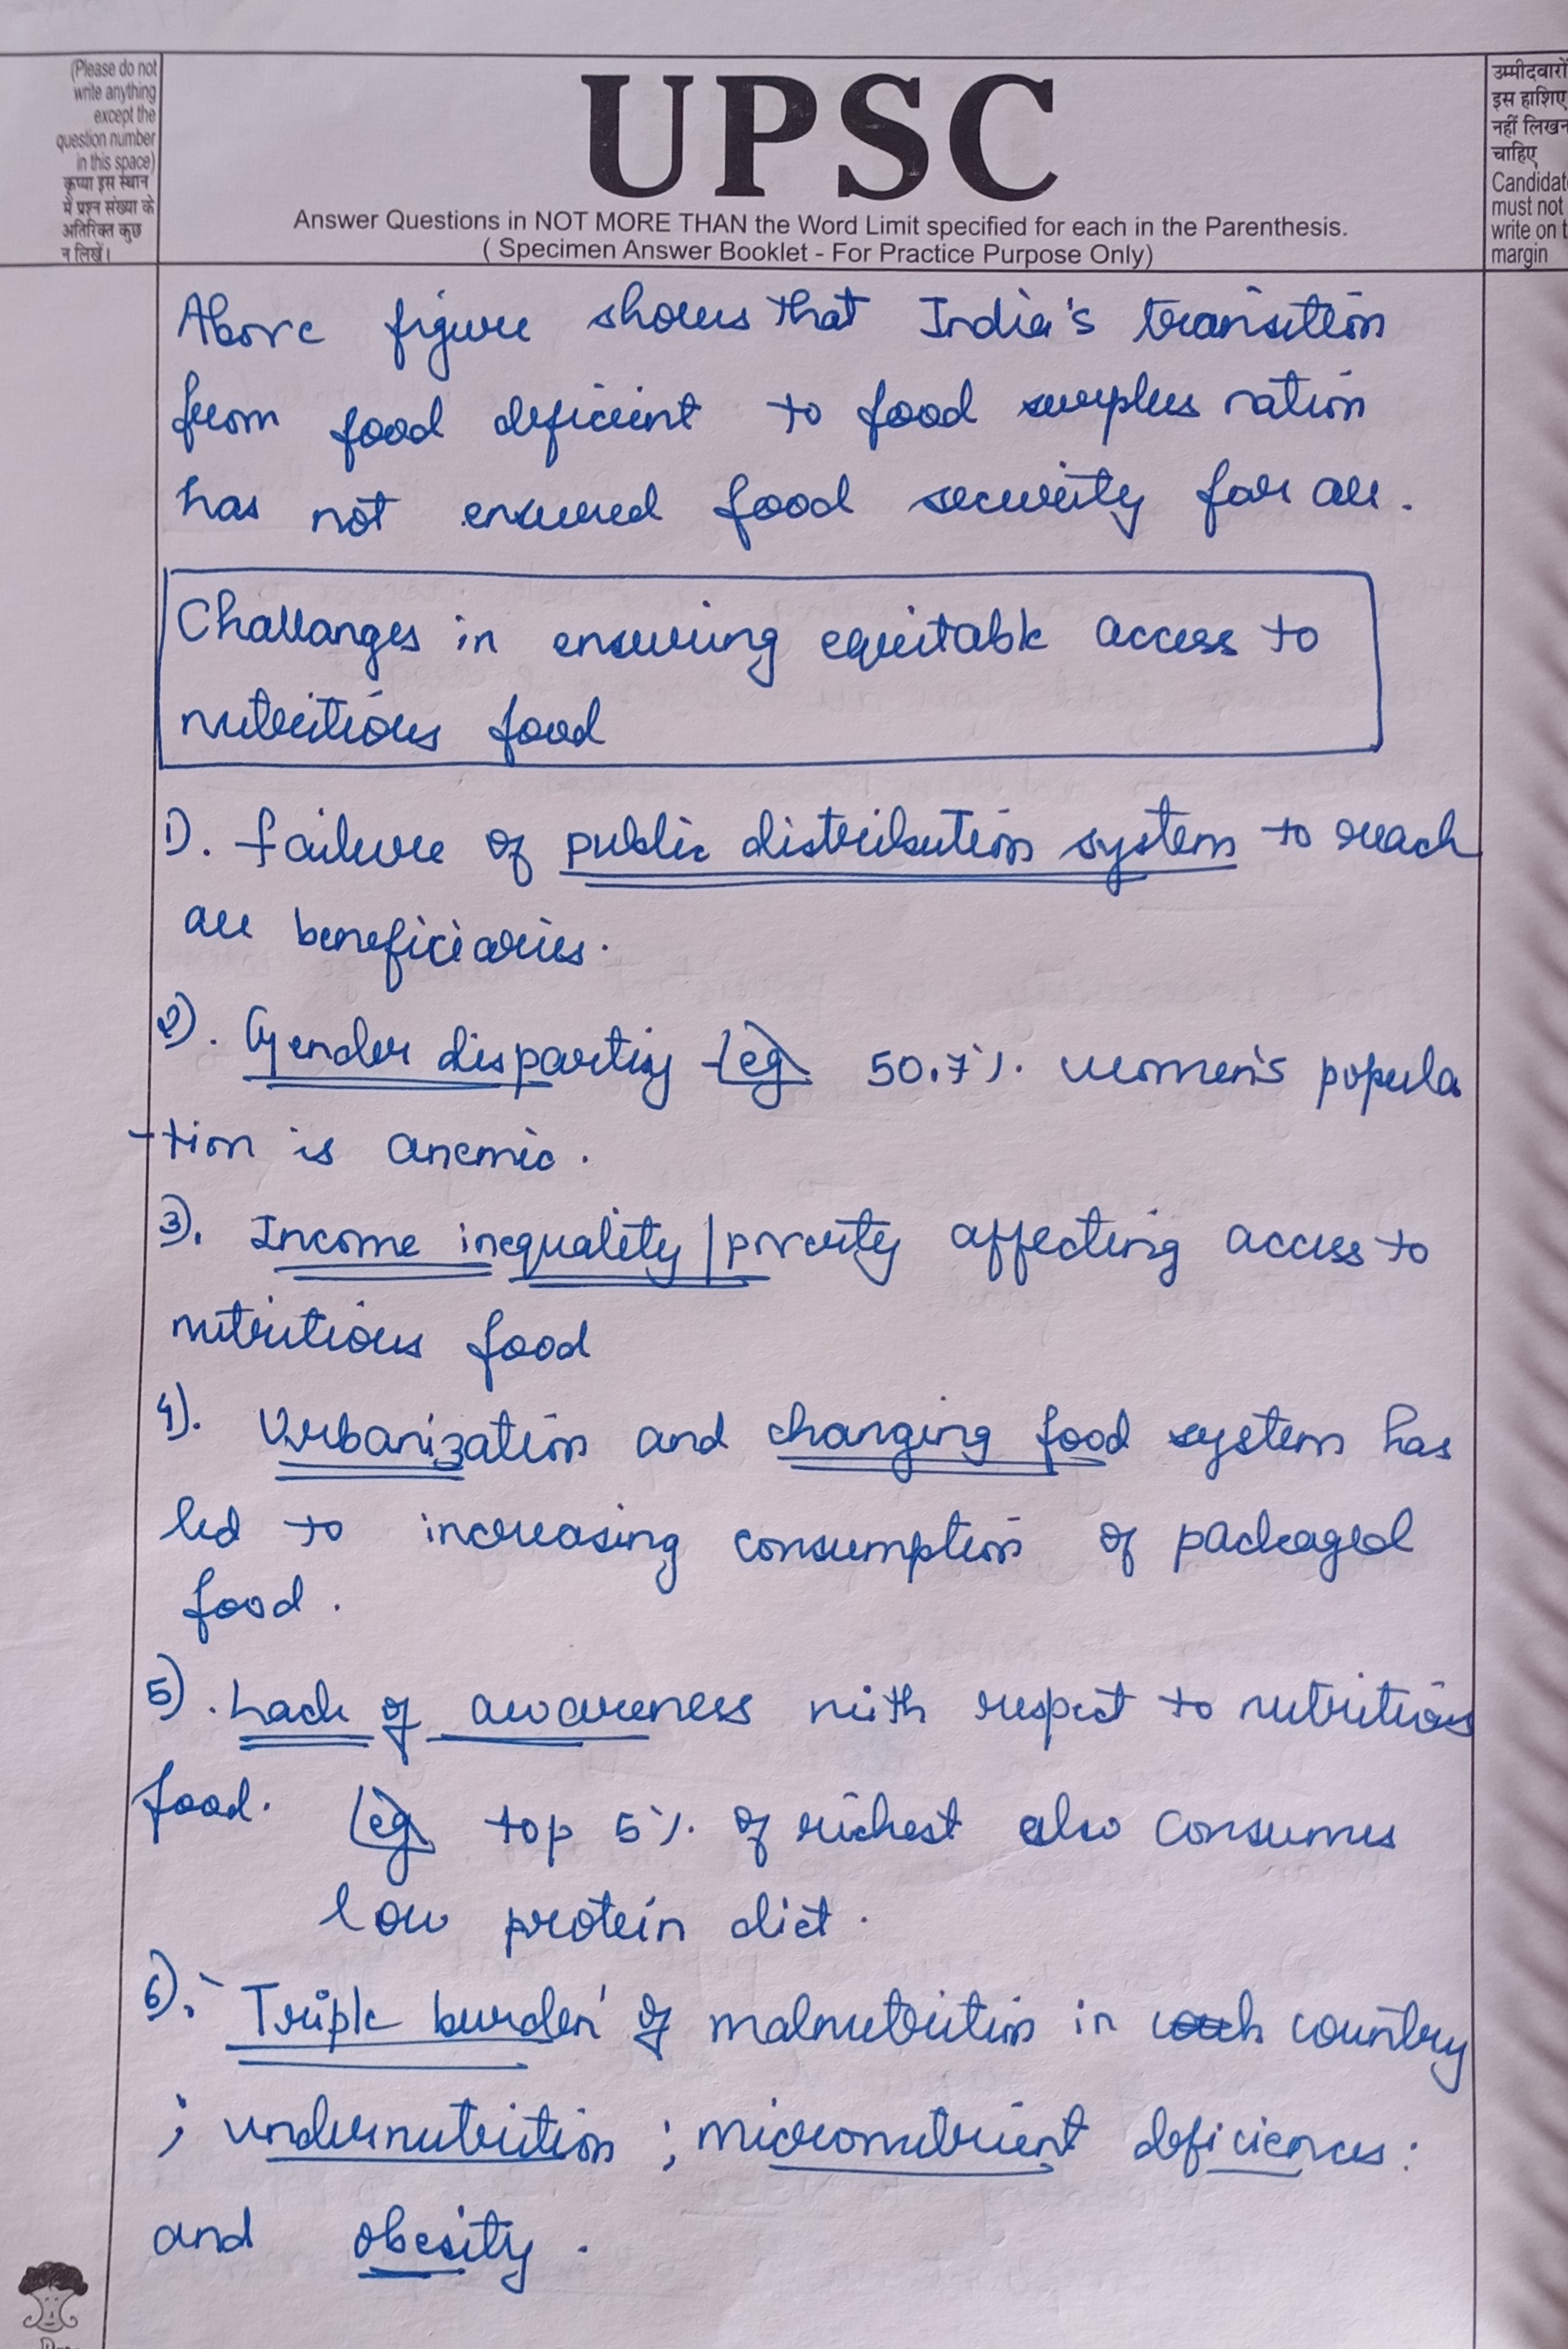 (Please do not
write anything
except the
question number
in this space)
कृप्या इस स्थान
में प्रश्न संख्या के
अतिरिक्त कुछ
न लिखें।
UPSC
Answer Questions in NOT MORE THAN the Word Limit specified for each in the Parenthesis.
( Specimen Answer Booklet - For Practice Purpose Only)
उम्मीदवारों
इस हाशिए
नहीं लिखन
चाहिए
Candidat
must not
write on t
margin
Above figure shows that India's transition
from food deficient to food surplus nation
has not ensured food security for all.
Challanges in ensuring equitable access to
nutritious food
1). Failure of public distribution system to reach
all beneficiaries.
2). Gender dispartiy eg 50.7%. women's popula
-tion is anemic.
3). Income inequality / poverty affecting access to
nutritious food
4). Urbanization and changing food system has
led to increasing consumption of packaged
food.
5). Lack of awareness with respect to nutritious
food. eg top 5%. of richest also consumes
low protein diet.
6). 'Triple burden' of malnutrition in country
; undernutrition ; micronutrient deficiences :
and obesity.